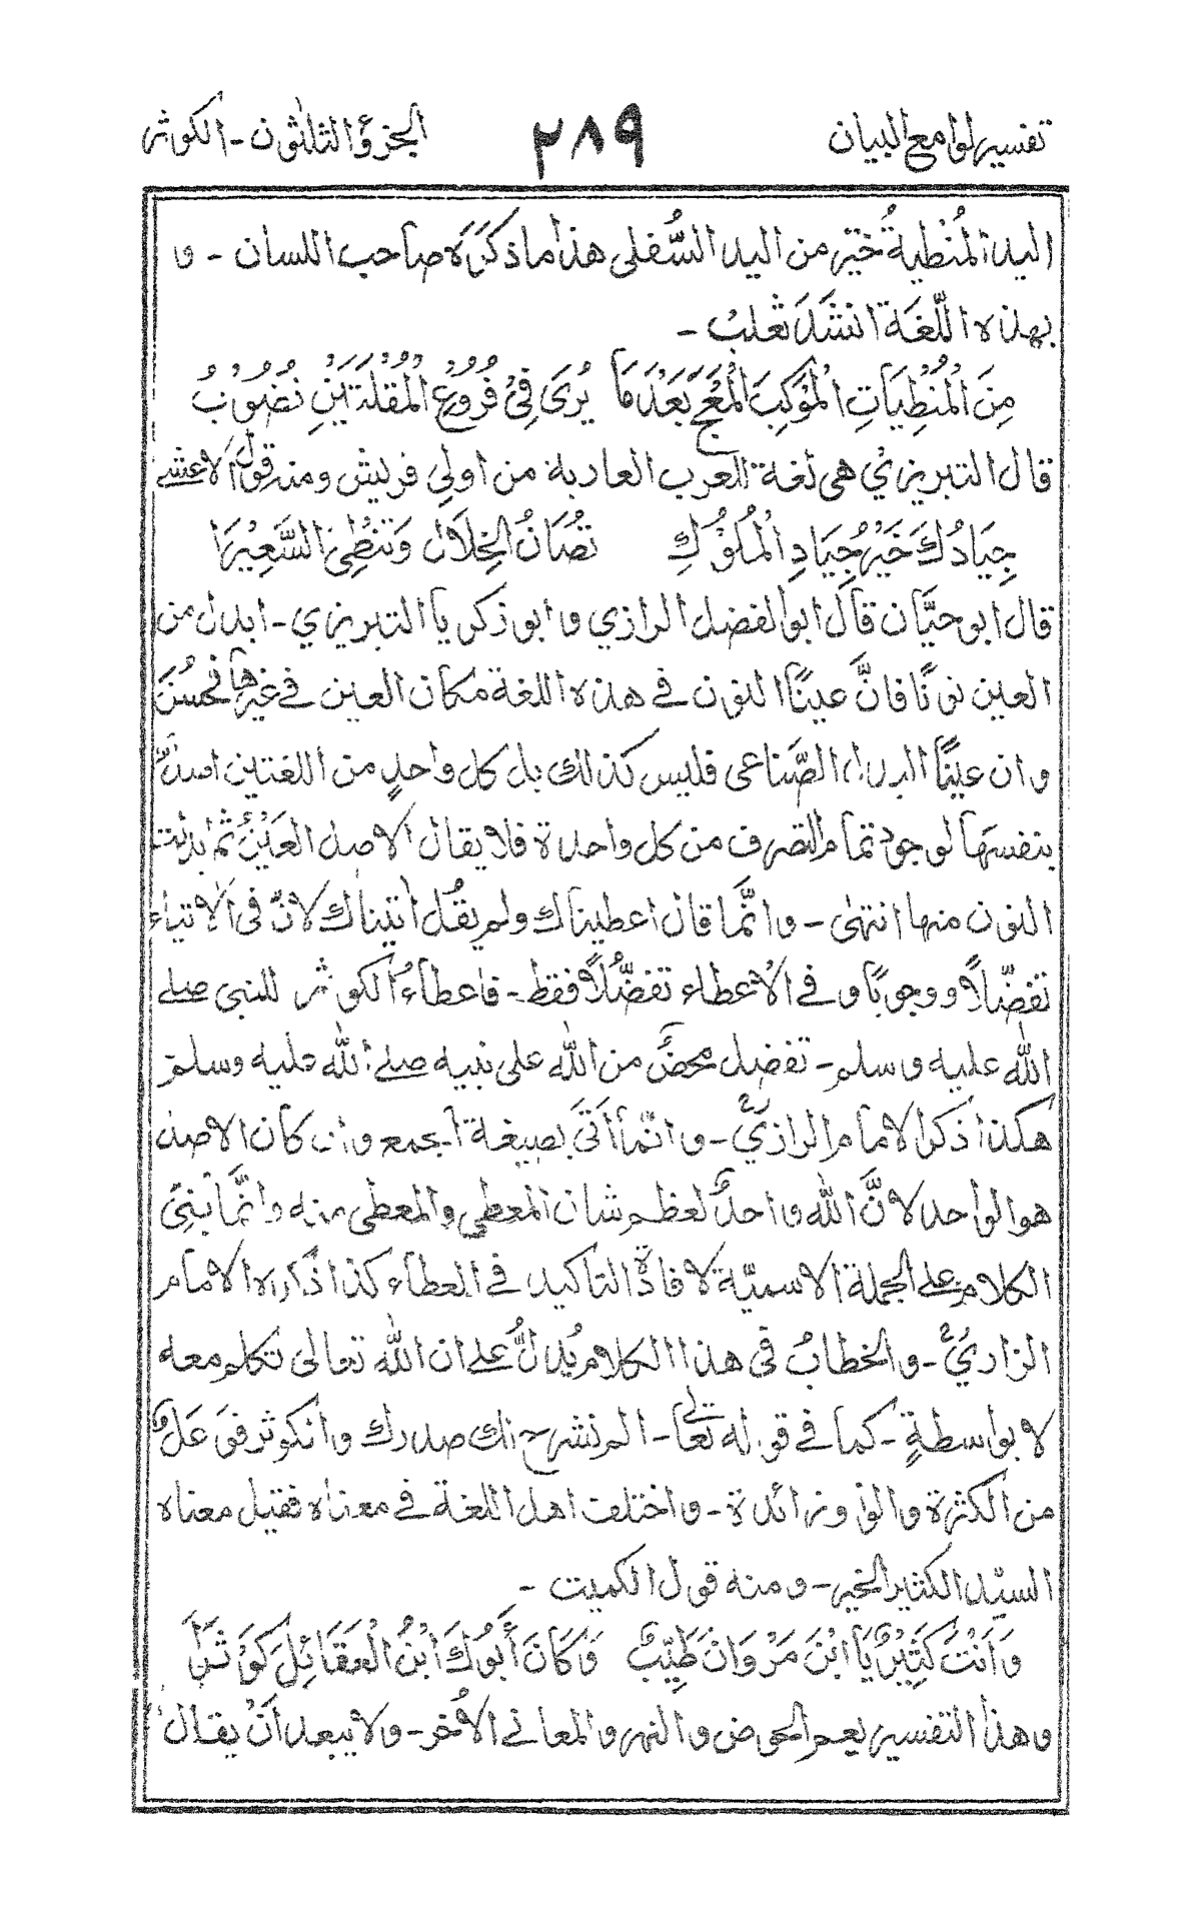 تفسير لوامع البيان ٢٨٩ الجزؤ الثلاثون - الكوثر
اليد المُنْطِيةُ خيرٌ من اليد السُّفلى هذا ما ذكَرَه صاحب اللسان - و
بهذه اللّغَة انشَدَ ثعلبٌ -
مِنَ الْمُنْطِيَاتِ الْمَوْكِبَ الْمَعْجَ بَعْدَمَا يُرىَ فِىْ فُرُوْعِ الْمُقْلَتَيْنِ نُضُوْبُ
قال التبريزي هى لغة للعرب العاربة من اولى قريش ومنه قول الاعشے
جِيَادُكَ خَيْرُ جِيَادِ الْمُلُوْكِ تُصَانُ الْجِلَالَ وَتنْطِىْ السَّعِيْرَا
قال ابو حيَّان قال ابو الفضل الرازي و ابو زكريا التبريزي - ابدل من
العين نونًا فانَّ عينًا النون فے هذه اللغة مكان العين فے غيرها فحسُنَ
وان عينًا البدل الصّناعى فليس كذلك بل كل واحدٍ من اللغتين اصلٌ
بنفسها لوجود تمام التصرف من كل واحدة فلا يقال الاصل العَيْنُ ثُم ابدلت
النون منها انتهٰى - و انَّما قال اعطيناك ولم يقُل آتيناك لانّ فى الايتاء
تفضّلاً و وجوبًا و فے الاعطاء تفضّلاً فقط - فاعطاءُ الكوثر للنبى صلے
الله عليه و سلم - تفضل محضٌ من الله على نبيه صلے الله عليه وسلم
هكذا ذكر الامام الرازيؒ - و انّما اتىَ بصيغة الجمع و ان كان الاصل
هو الواحد لانَّ الله واحدٌ لعظم شان المعطِى والمعطى منه و انَّما بَنىَ
الكلام علے الجملة الاسميّة لافادة التاكيد فے العطاء كذا ذكره الامام
الرازيؒ - والخطابُ فى هذا الكلام يُدلُّ علے ان الله تعالى تكلم معه
لا بواسطةٍ - كما فے قوله تعالى - الم نشرح لك صدرك والكوثر فَوْعَلٌ
من الكثرة والواو زائدة - واختلف اهل اللغة فے معناه فقيل معناه
السيّد الكثير الخير - و منه قول الكميت -
وَاَنْتَ كَثِيْرٌ يَا ابْنَ مَرْوَانَ طَيِّبٌ وَكَانَ أَبُوكَ ابْنُ الْعَقَائِلِ كَوْثَرَا
وهذا التفسير يعم الحوض والنهر والمعانے الاُخر - ولا يبعد اَنْ يقال